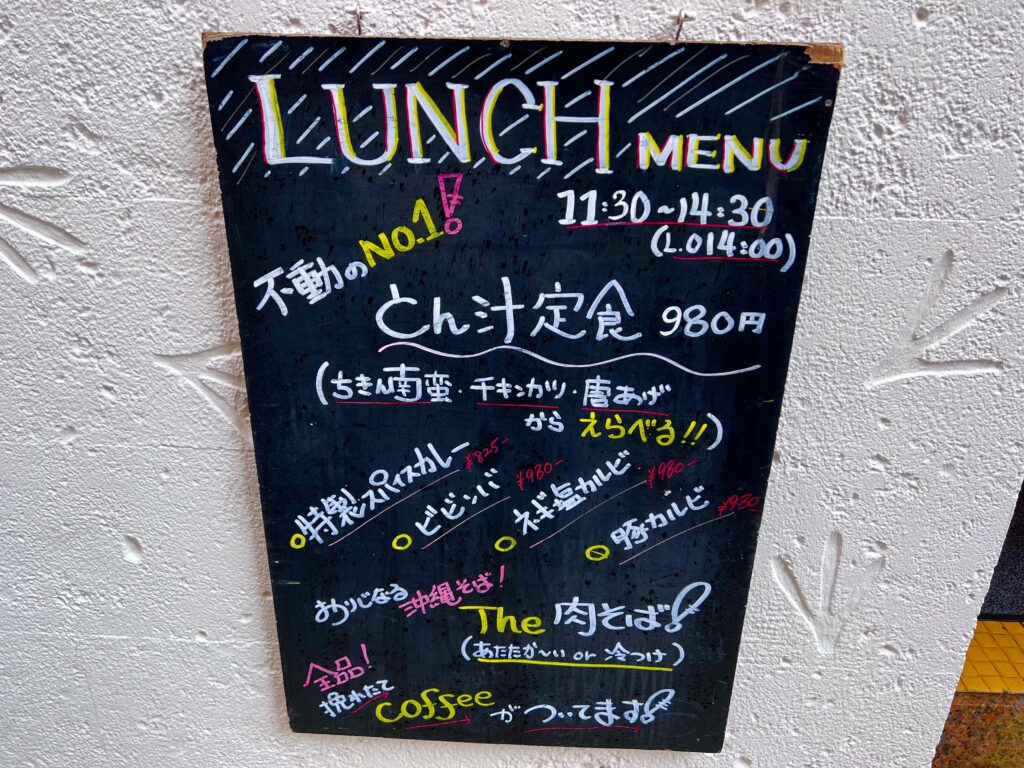 LUNCH MENU
11:30~14:30
(L.O14:00)
不動のNO.1!
とん汁定食 980円
(ちきん南蛮・チキンカツ・唐あげ
から えらべる!!)
特製スパイスカレー ¥825-
ビビンバ ¥980-
ネギ塩カルビ ¥980-
豚カルビ ¥980
おりじなる 沖縄そば!
The 肉そば!
(あたたか~い or 冷つけ)
全品!
挽れたて
coffee が ついてます!